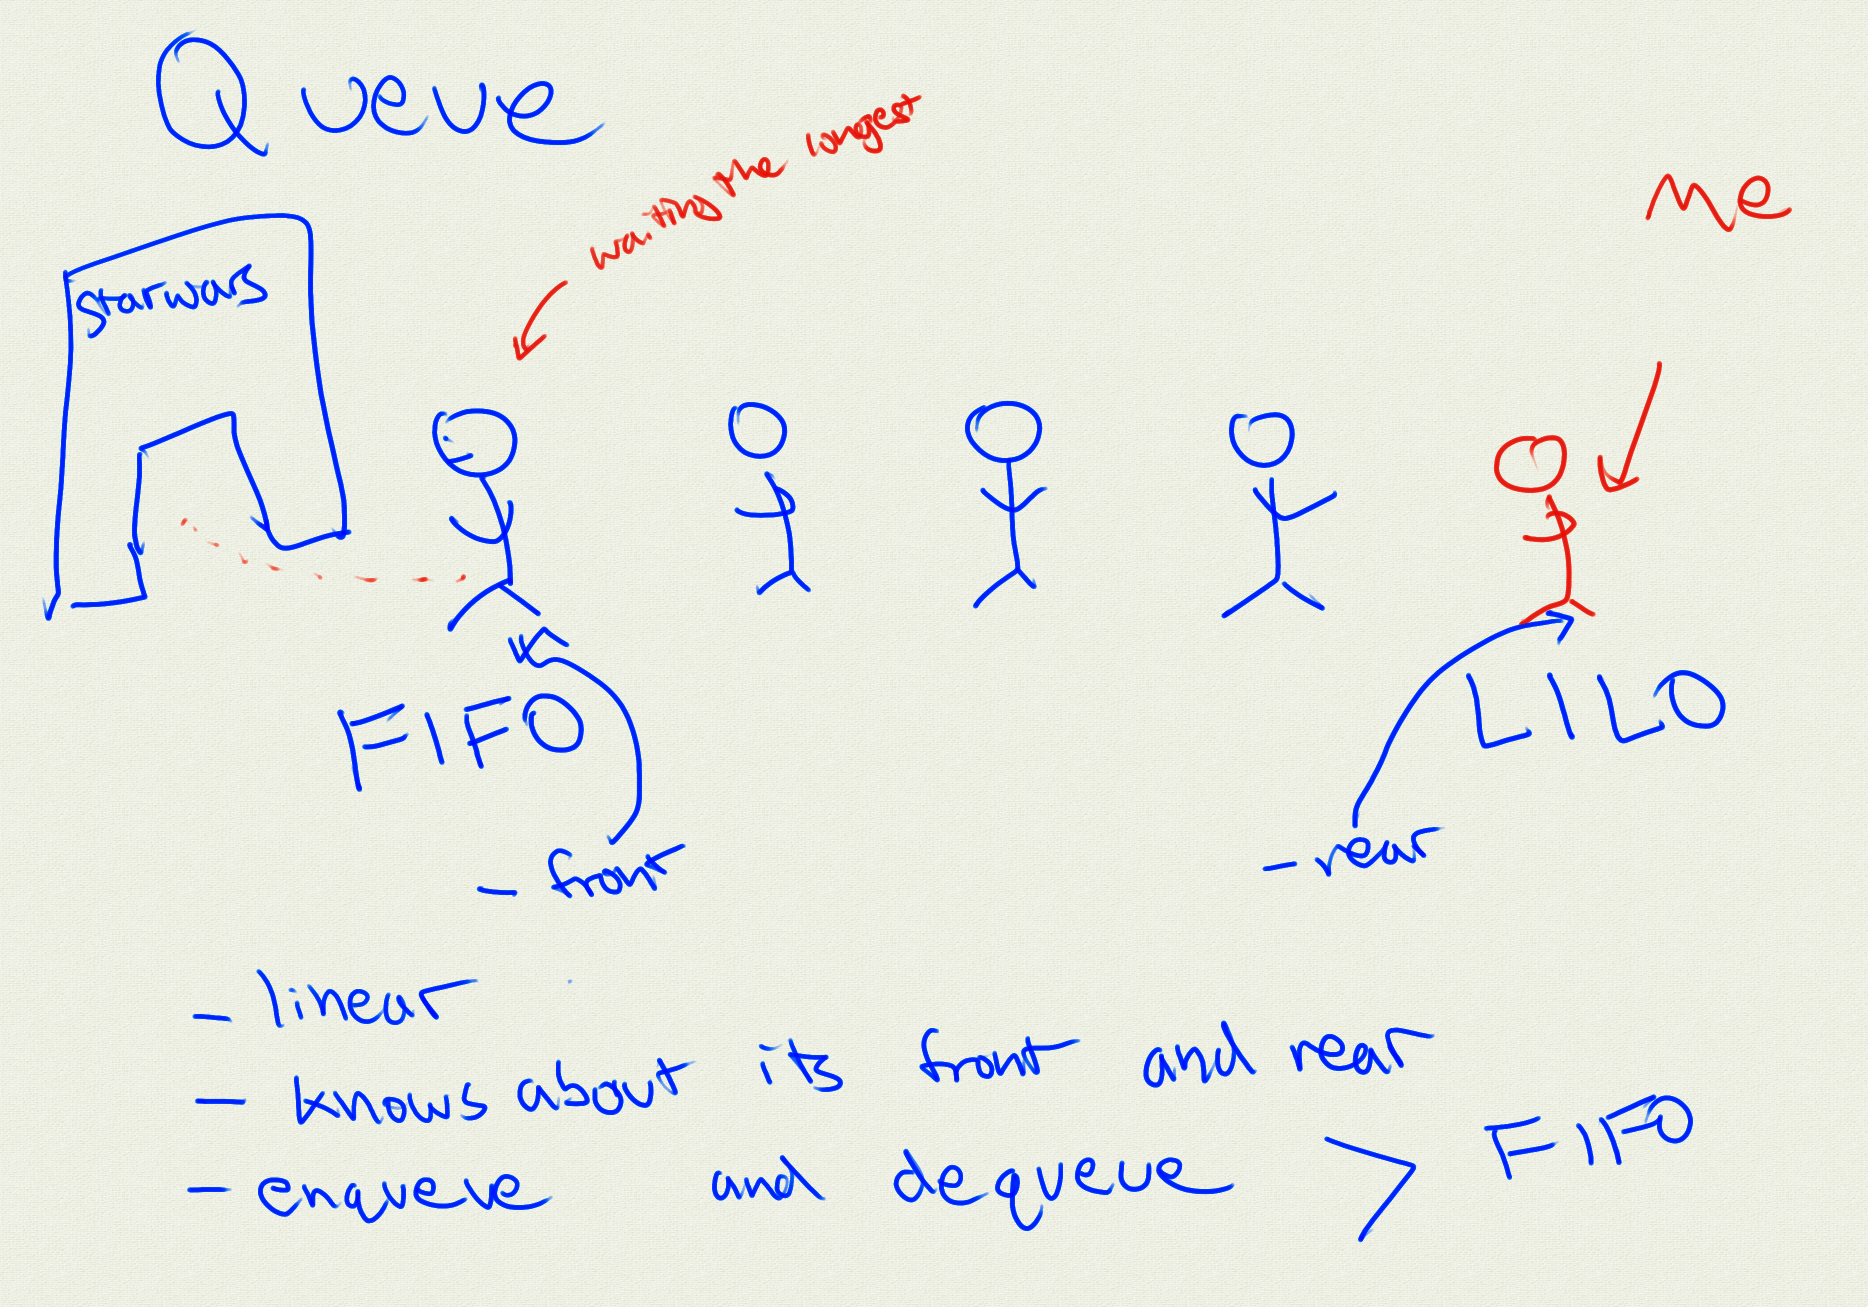 Queue
waiting the longest
Me
starwars
FIFO
LILO
- front
- rear
- linear
- knows about its front and rear
- enqueue and dequeue > FIFO